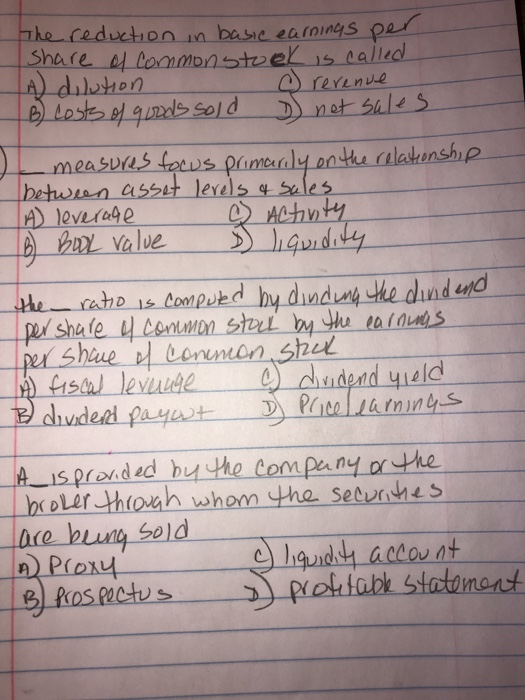 The reduction in basic earnings per
share of common stock is called
A) dilution C) revenue
B) costs of goods sold D) net sales
_ measures focus primarily on the relationship
between asset levels & sales
A) leverage C) Activity
B) Book value D) liquidity
the _ ratio is computed by dividing the dividend
per share of common stock by the earnings
per share of common stock
A) fiscal leverage C) dividend yield
B) dividend payout D) Price/earnings
A _ is provided by the company or the
broker through whom the securities
are being sold
A) Proxy C) liquidity account
B) Prospectus D) profitable statement